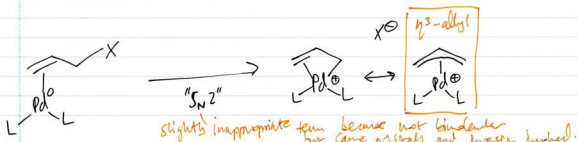 X⊖
η³-allyl
X
Pd⁰
L L
"SN2"
Pd⊕
L L
↔
Pd⊕
L L
slightly inappropriate term because not bimolecular
but same orbitals and inversion involved.